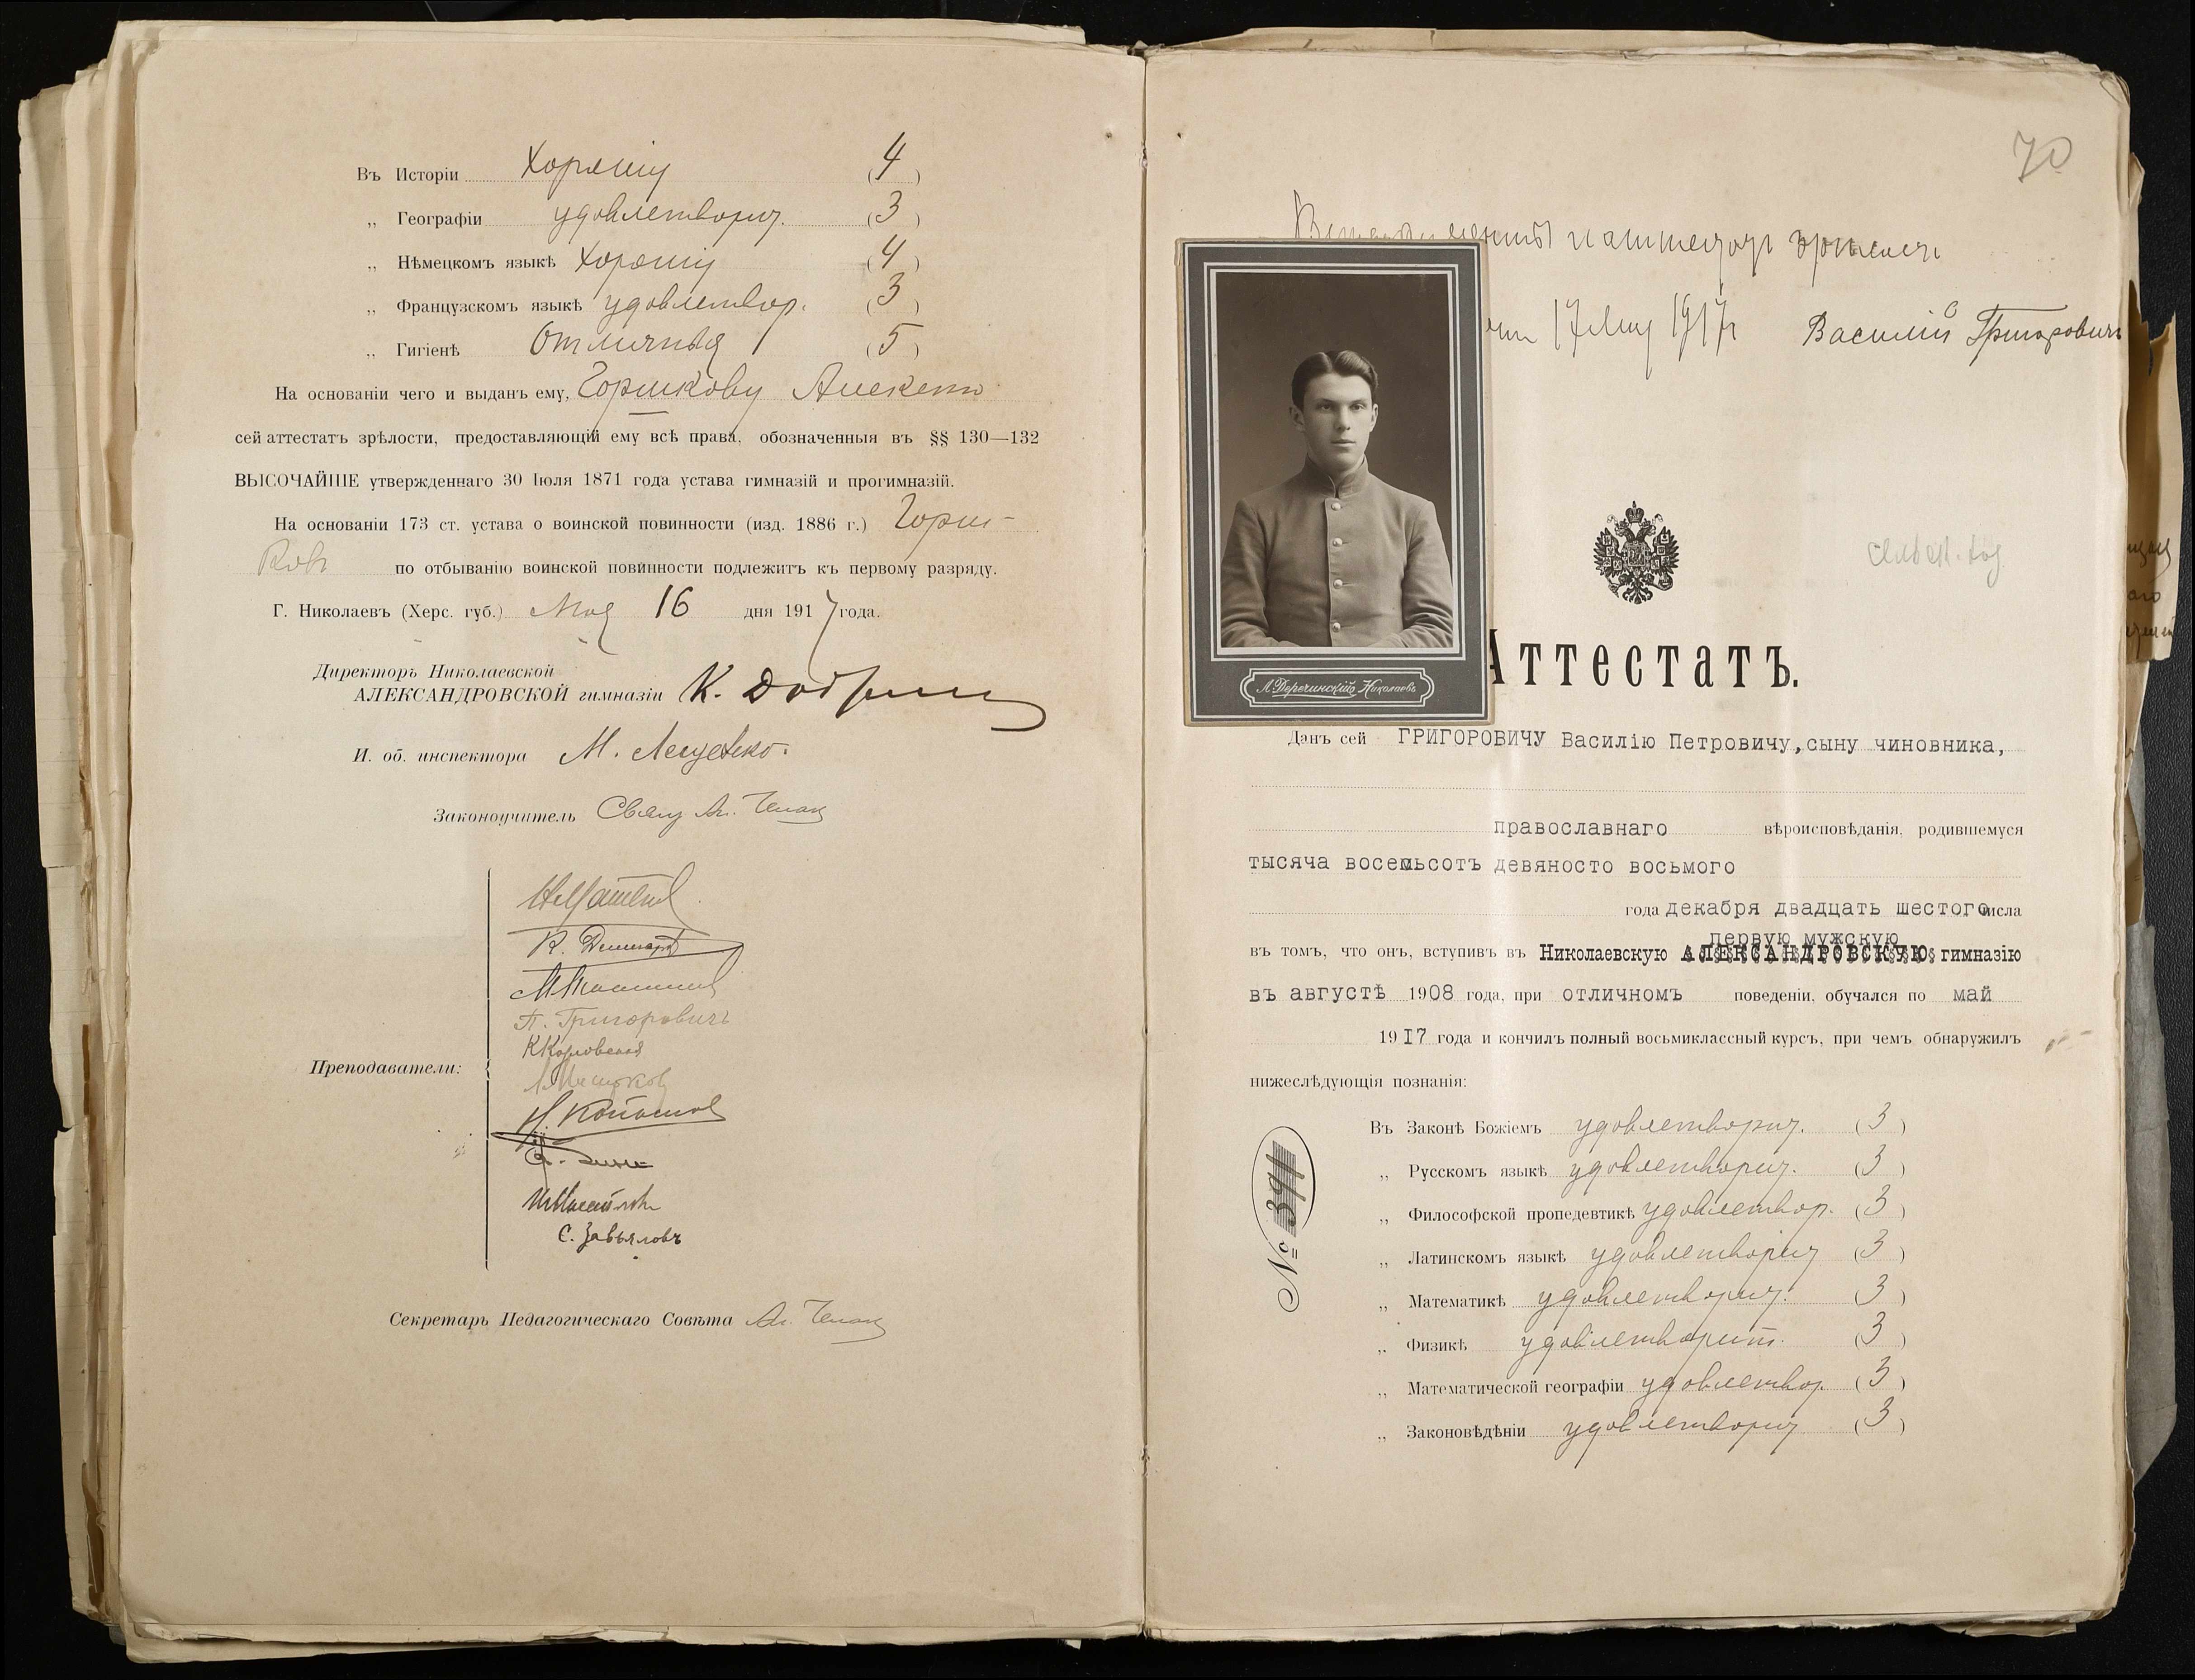 Въ Исторіи хорошія (4)
„ Географіи удовлетворит. (3)
„ Нѣмецкомъ языкѣ хорошія (4)
„ Французскомъ языкѣ удовлетвор. (3)
„ Гигіенѣ Отличныя (5)
На основаніи чего и выданъ ему, Горшкову Алексею
сей аттестатъ зрѣлости, предоставляющій ему всѣ права, обозначенныя въ §§ 130—132
ВЫСОЧАЙШЕ утвержденнаго 30 Іюля 1871 года устава гимназій и прогимназій.
На основаніи 173 ст. устава о воинской повинности (изд. 1886 г.) Горш-
ковъ по отбыванію воинской повинности подлежитъ къ первому разряду.
Г. Николаевъ (Херс. губ.) Мая 16 дня 1917 года.
Директоръ Николаевской
АЛЕКСАНДРОВСКОЙ гимназіи К.
И. об. инспектора М.
Законоучитель Свящ. Ал.
П. Григоровичъ
Преподаватели:
С. Завьяловъ
Секретарь Педагогическаго Совѣта Ал.
70
аттестатъ
17 Мая 1917 г. Василій Григоровичъ
Николаевъ
Аттестатъ.
Данъ сей ГРИГОРОВИЧУ Василію Петровичу, сыну чиновника,
православнаго вѣроисповѣданія, родившемуся
тысяча восемьсотъ девяносто восьмого
года декабря двадцать шестого числа
первую мужскую
въ томъ, что онъ, вступивъ въ Николаевскую АЛЕКСАНДРОВСКУЮ гимназію
въ августѣ 1908 года, при отличномъ поведеніи, обучался по май
1917 года и кончилъ полный восьмиклассный курсъ, при чемъ обнаружилъ
нижеслѣдующія познанія:
Въ Законѣ Божіемъ удовлетворит. (3)
„ Русскомъ языкѣ удовлетворит. (3)
„ Философской пропедевтикѣ удовлетвор. (3)
„ Латинскомъ языкѣ удовлетворит (3)
„ Математикѣ удовлетворит. (3)
„ Физикѣ удовлетворит. (3)
„ Математической географіи удовлетвор. (3)
„ Законовѣдѣніи удовлетворит (3)
№ 391